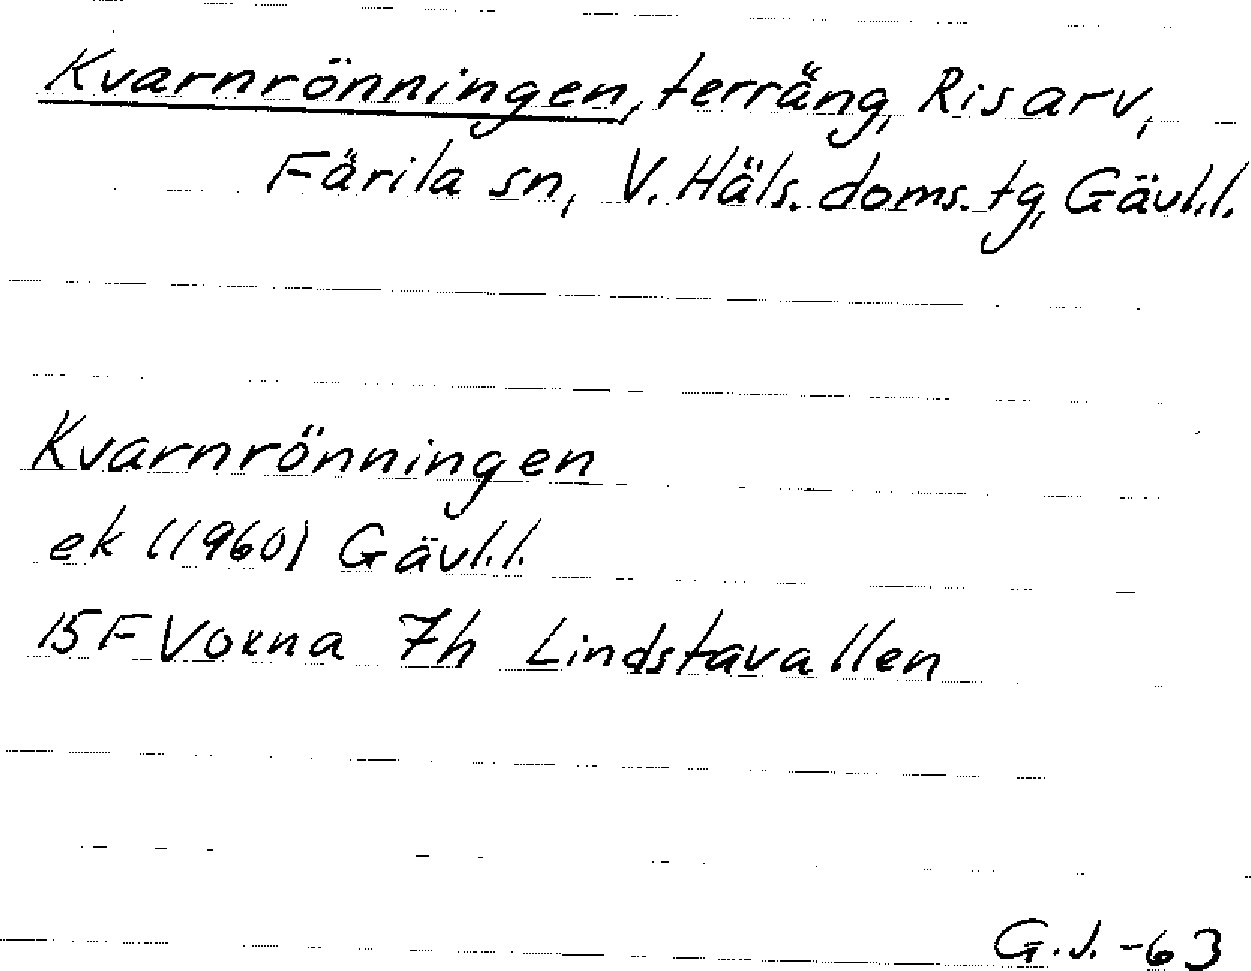 Kvarnrönningen, terräng, Risarv,
Färila sn, V. Häls. doms. tg, Gävl.l.
Kvarnrönningen
ek (1960) Gävl.l.
15F Voxna 7h Lindstavallen
G.J. -63